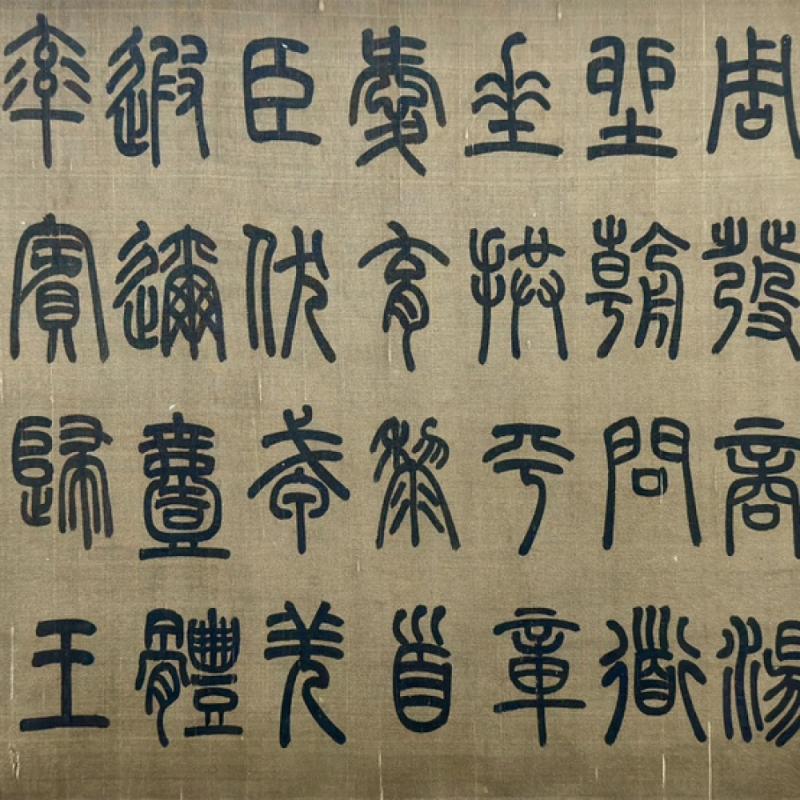 周發商湯
坐朝問道
垂拱平章
愛育黎首
臣伏戎羌
遐邇壹體
率賓歸王